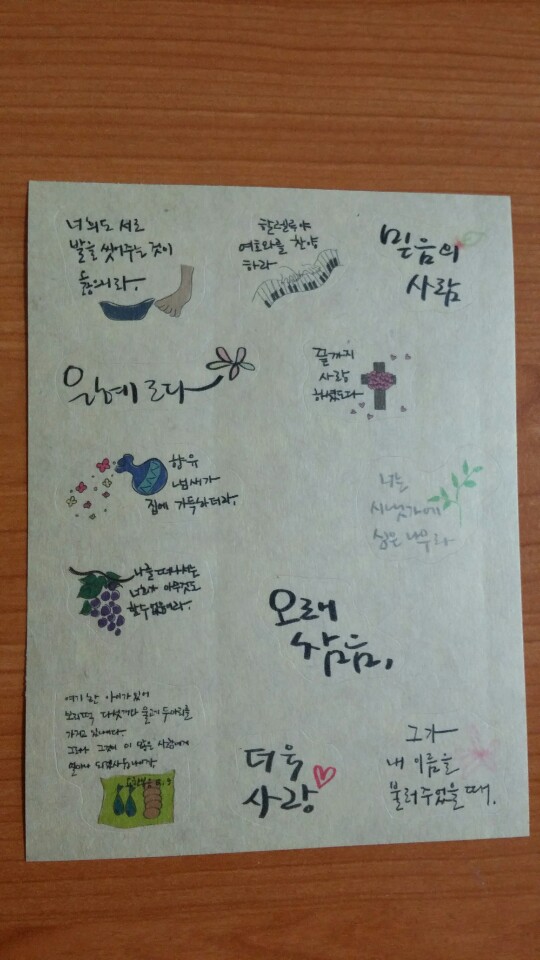 너희도 서로
발을 씻어주는 것이
옳으니라.
할렐루야
여호와를 찬양
하라
믿음의
사람
은혜로다
끝까지
사랑
하셨도다
향유
냄새가
집에 가득하더라.
너는
시냇가에
심은 나무라
나를 떠나서는
너희가 아무것도
할 수 없음이라.
오래
참음.
여기 한 아이가 있어
보리떡 다섯개와 물고기 두마리를
가지고 있나이다
그러나 그것이 이 많은 사람에게
얼마나 되겠사옵나이까
더욱
사랑
그가
내 이름을
불러주었을 때.